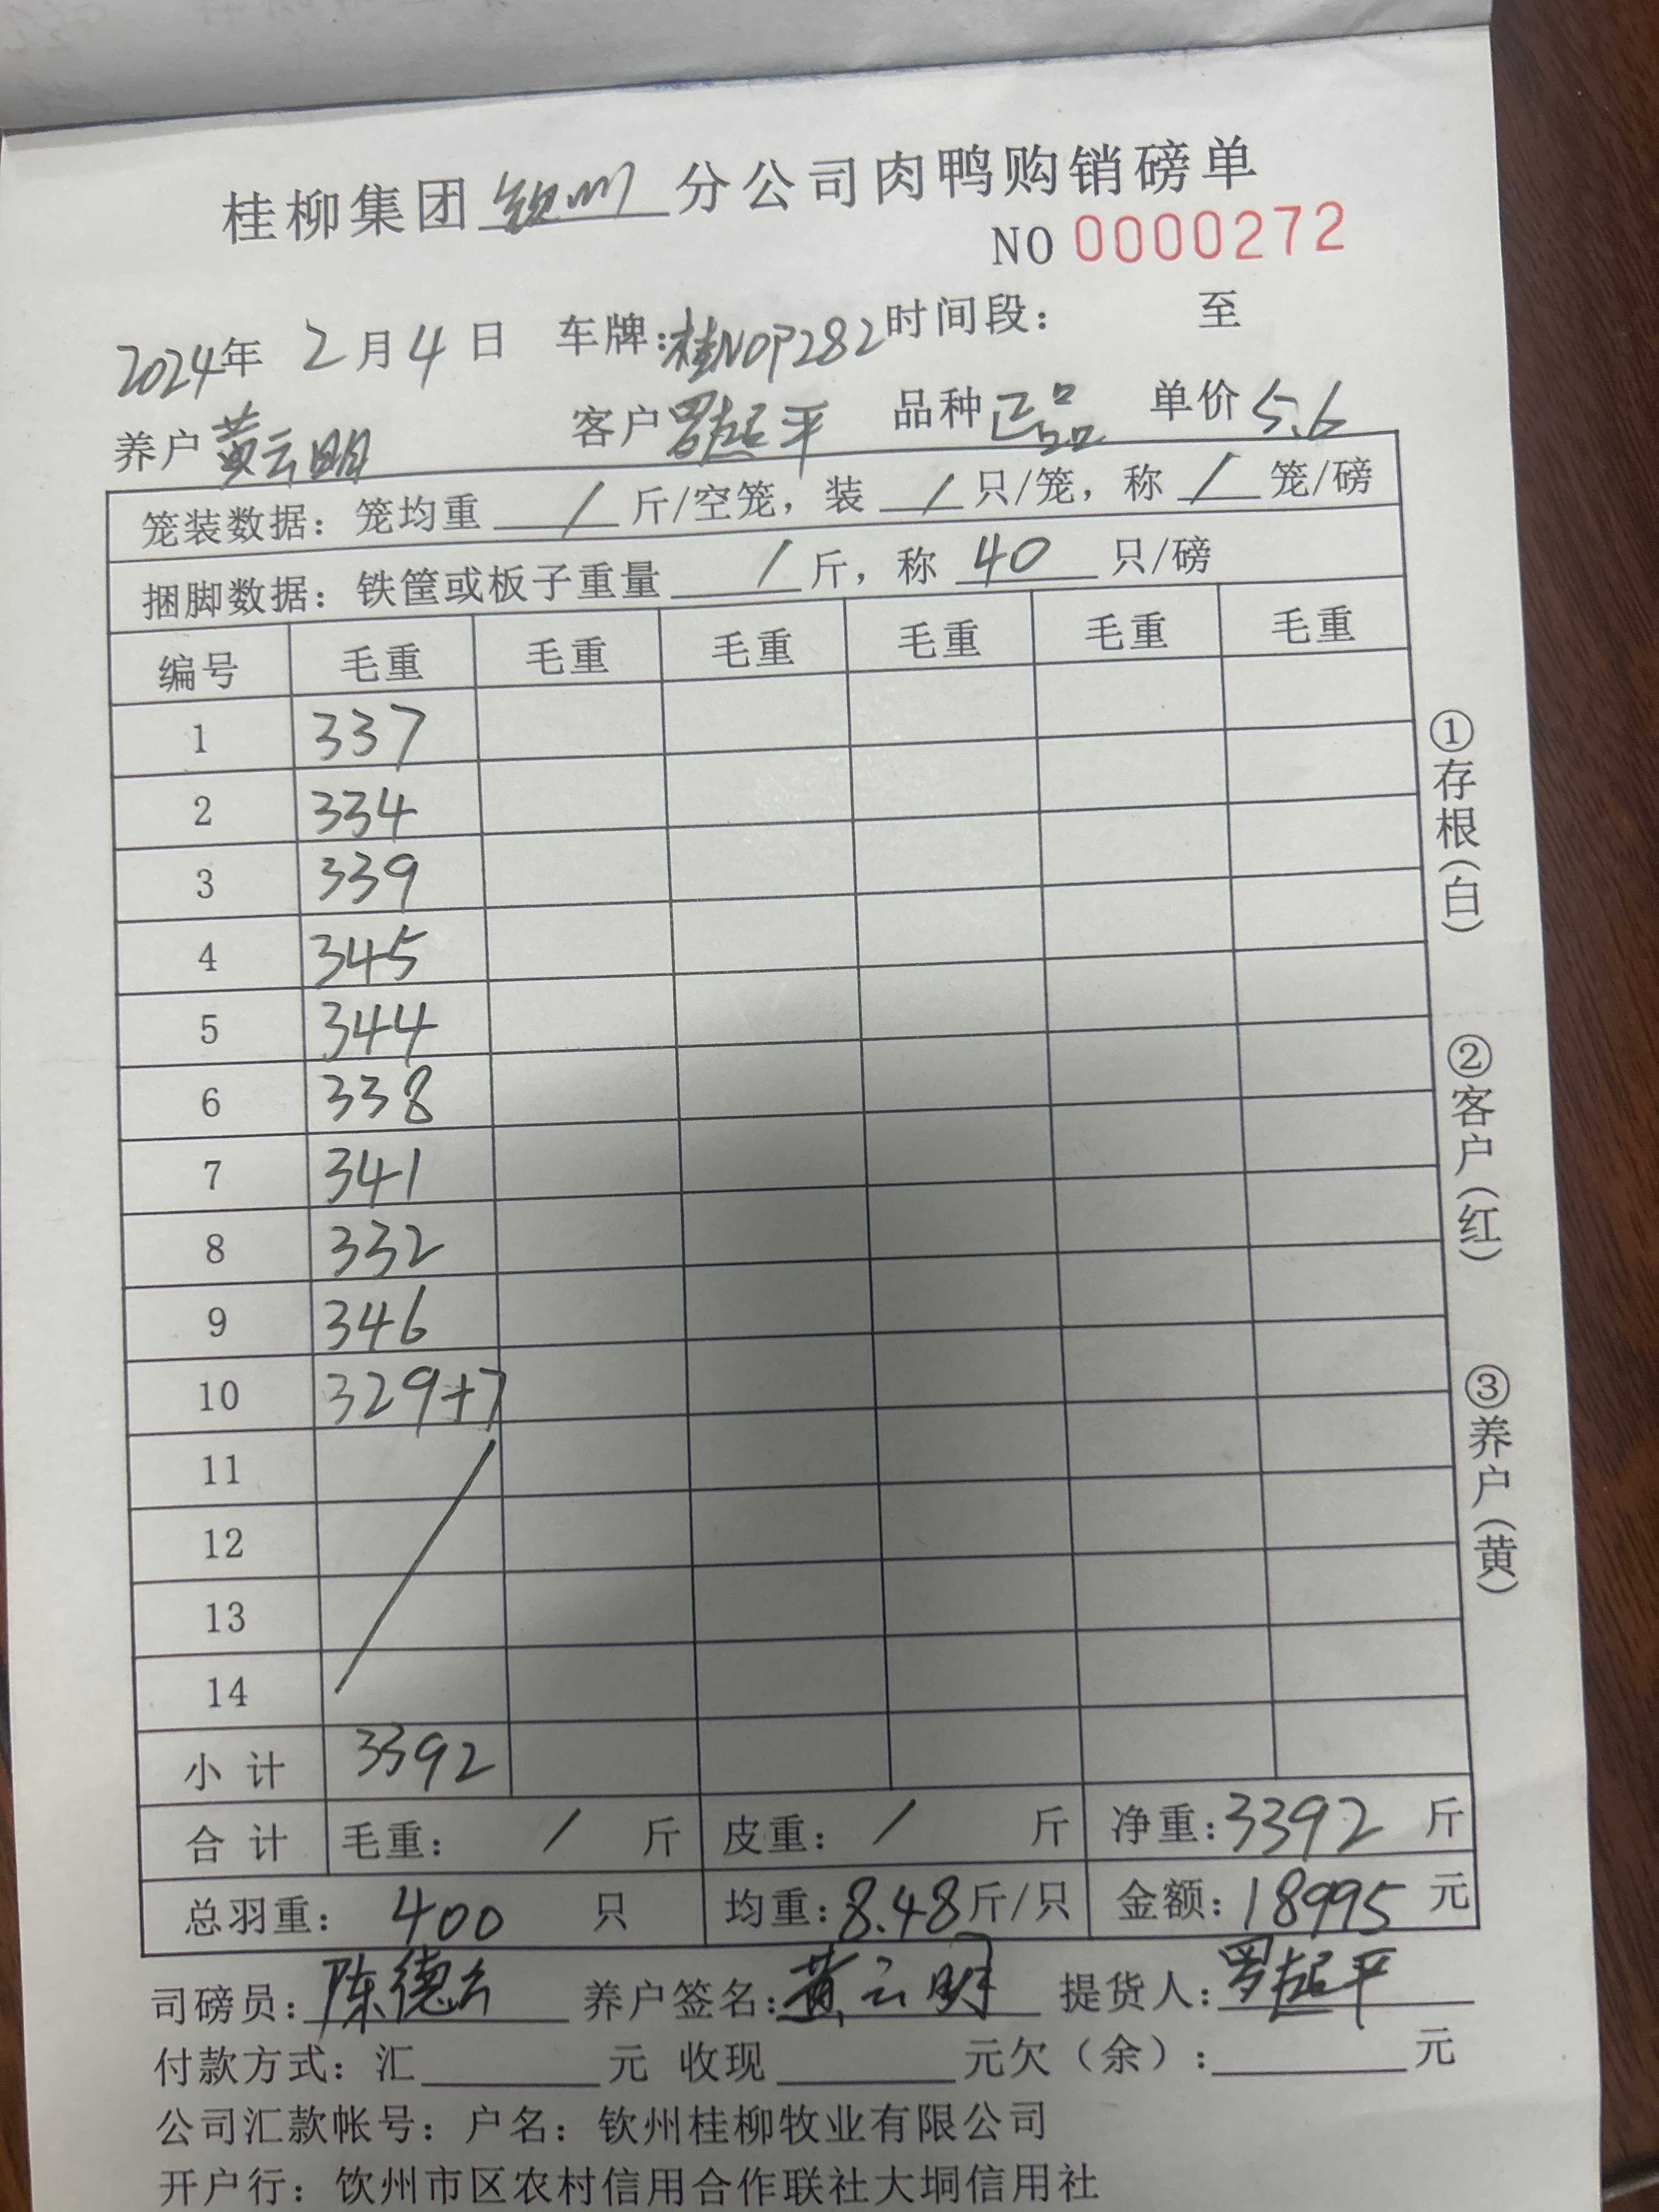 桂柳集团钦州分公司肉鸭购销磅单
NO 0000272
2024年 2月4日 车牌:桂NOP282 时间段: 至
养户 黄云明 客户 罗起平 品种 正品 单价 5.6
笼装数据: 笼均重 / 斤/空笼, 装 / 只/笼, 称 / 笼/磅
捆脚数据: 铁筐或板子重量 / 斤, 称 40 只/磅
编号 毛重 毛重 毛重 毛重 毛重 毛重
1 337
2 334
3 339
4 345
5 344
6 338
7 341
8 332
9 346
10 329+7
11
12
13
14
小计 3392
合计 毛重: / 斤 皮重: / 斤 净重:3392 斤
总羽重: 400 只 均重:8.48斤/只 金额:18995元
司磅员:陈德云 养户签名:黄云明 提货人:罗起平
付款方式: 汇 元 收现 元欠(余): 元
公司汇款帐号: 户名: 钦州桂柳牧业有限公司
开户行: 钦州市区农村信用合作联社大垌信用社
①存根(白)
②客户(红)
③养户(黄)